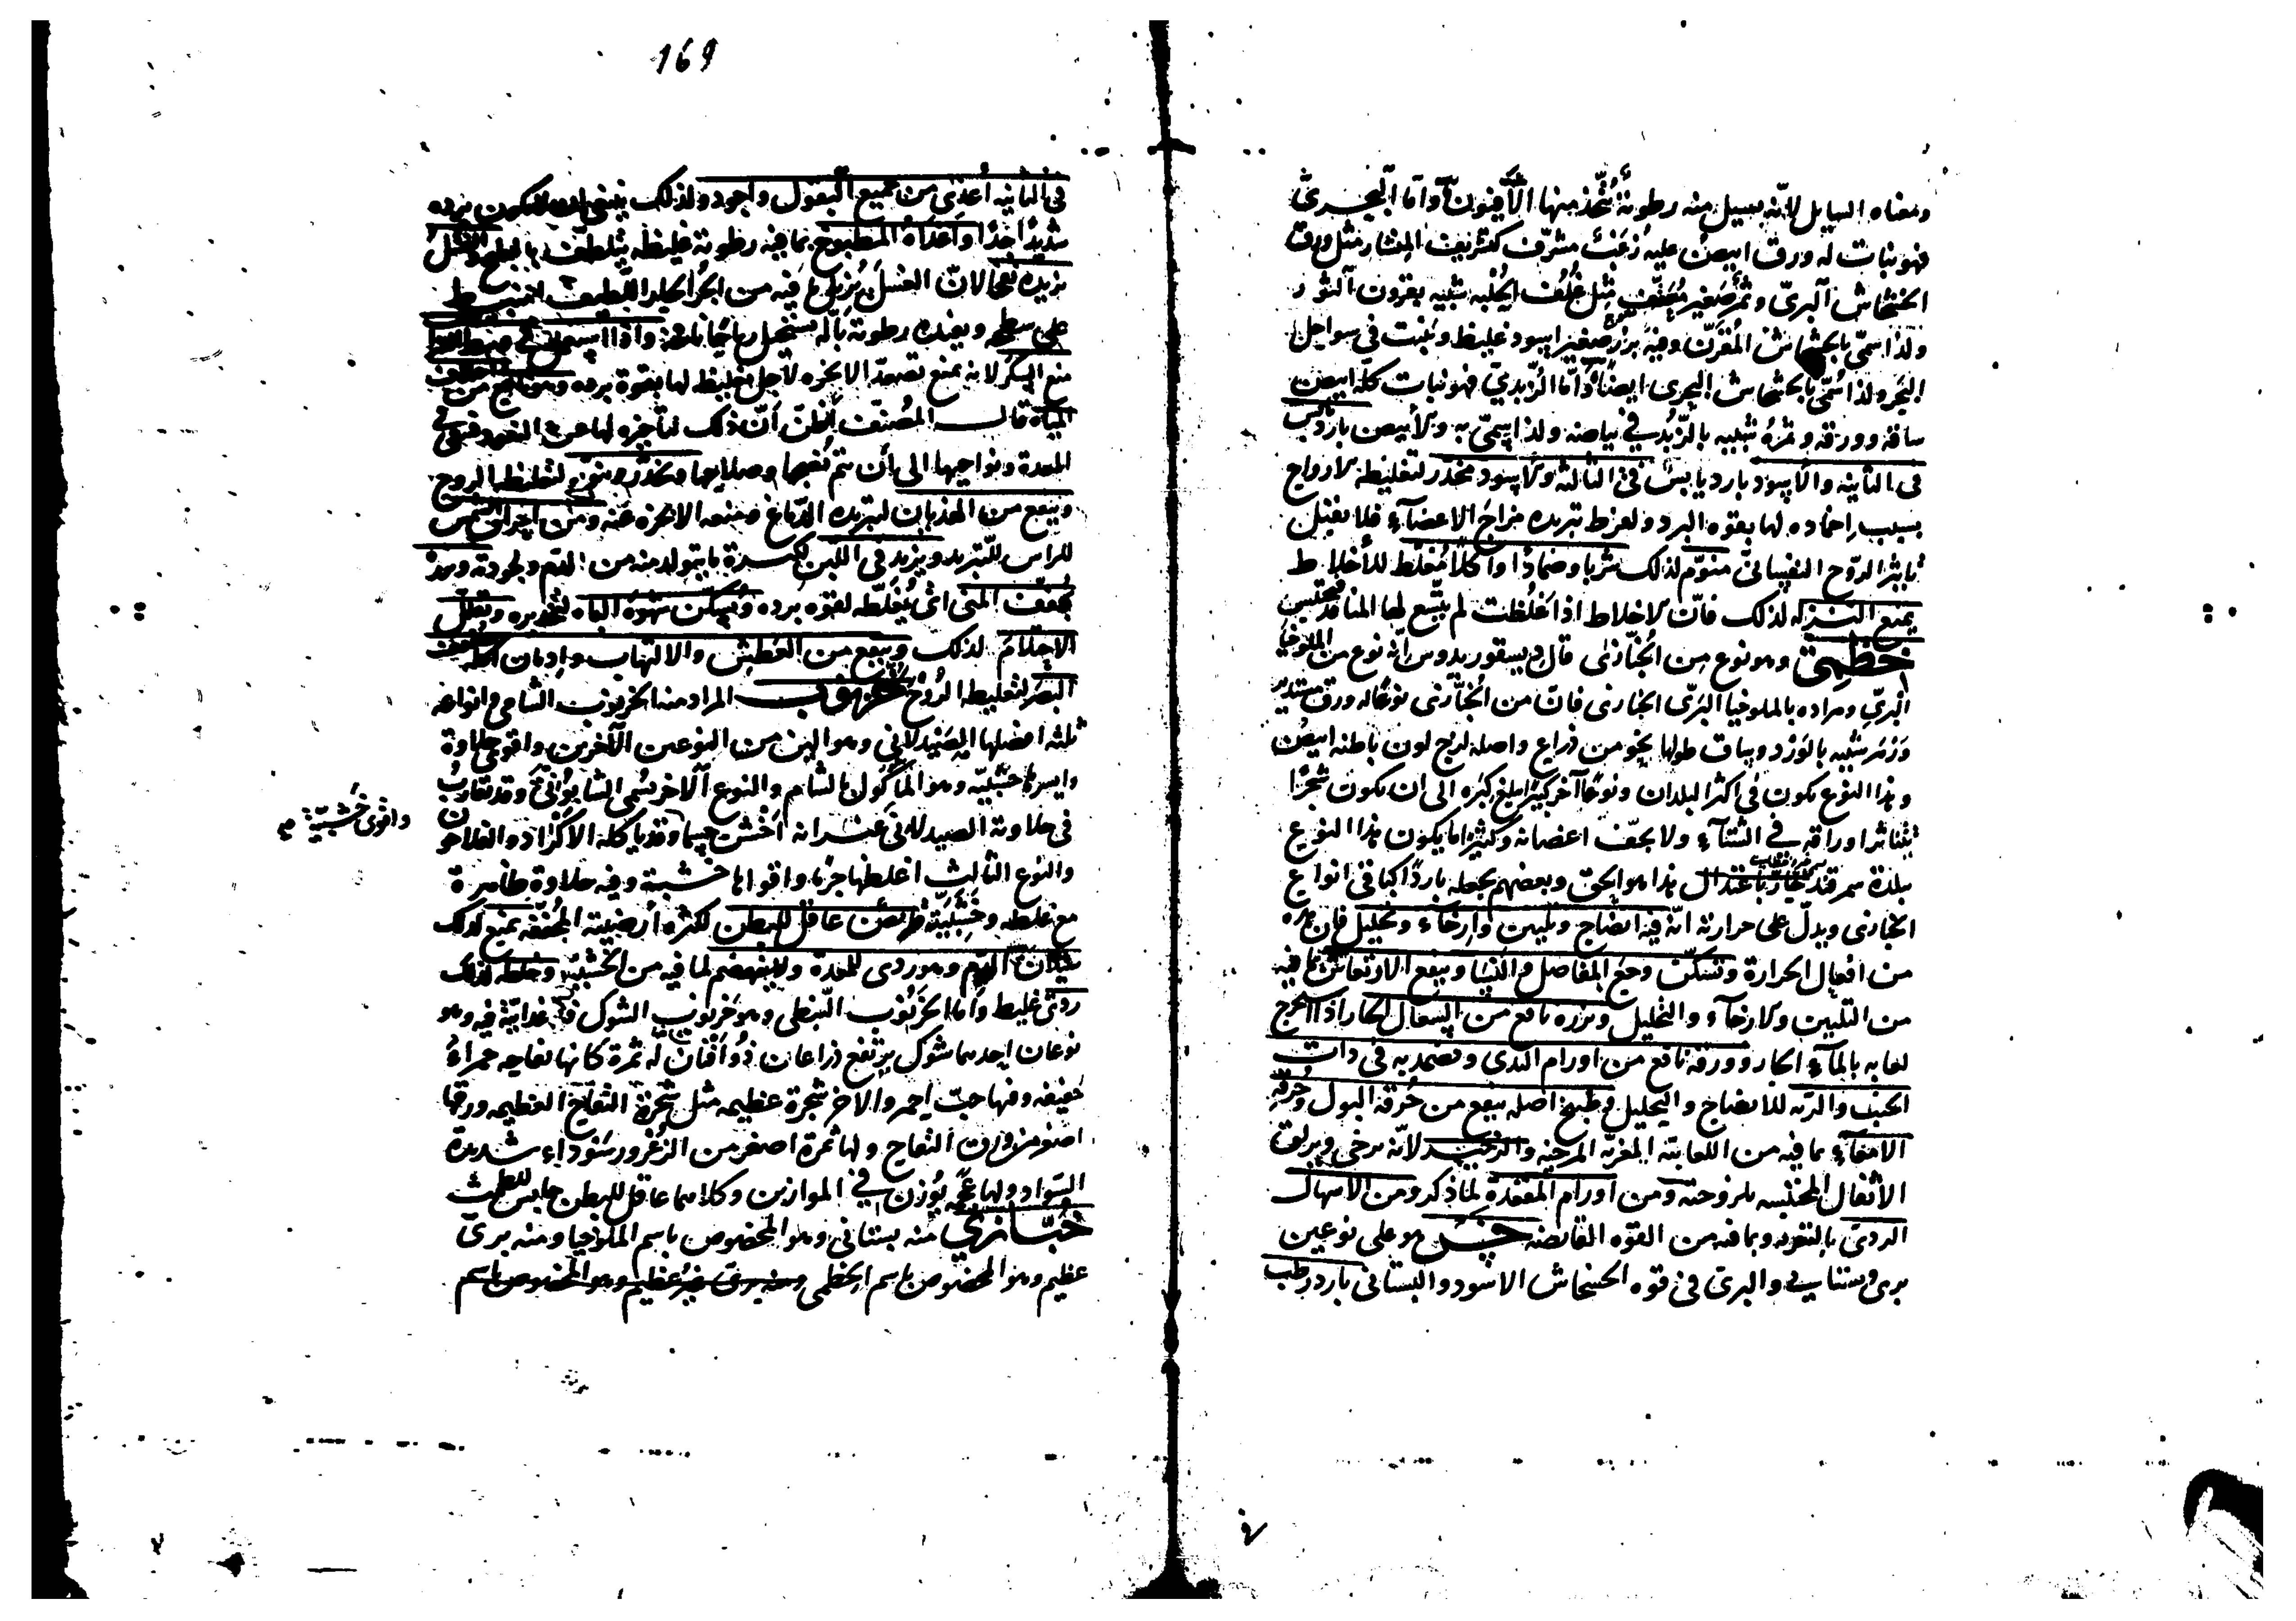 ومعناه السايل لانّه يسيل منه رطوبة تُتّخذ منها الأفيون وأمّا البحرىّ
فهو نبات له ورق ابيض عليه زغب مشرّف كتشريف المنشار مثل ورق
الخشخاش البرىّ وثمر صغير مثل غلُف الحلبه شبيه بقرون الثور
ولذا سمّى بالخشخاش المُقرّن وفيه بزر صغير اسود غليظ وينبت فى سواحل
البحر ولذا سُمّى بالخشخاش البحرى ايضًا وأمّا الزّبدىّ فهو نبات كلّه ابيض
ساقه وورقه وثمرُه شبيه بالزّبد في بياضه ولذا سمّى به والأبيض بارد يابس
فى الثانيه والأسود بارد يابس فى الثالثه والاسود مخدّر لتغليظه الارواح
بسبب اخماده لها بقوه البرد ولفرط تبريده مزاج الاعضآء فلا يقبل
تاثير الرّوح النفسانىّ منوّم لذلك شربا وضمادًا واكلًا مغلّظ للأخلاط
يمنع النزله لذلك فانّ الاخلاط اذا غلُظت لم يتّسع لها المنافذ فتحتبس
خطمىّ وهو نوع من الخبّازى قال ديسقوريدوس انّه نوع من الملوخيا
البرّى ومراده بالملوخيا البرّى الخبازى فانّ من الخبّازى نوعًا له ورق مستدير
وزهر شبيه بالورد وساق طولها نحو من ذراع واصله لزج لون باطنه ابيض
وهذا النوع يكون فى اكثر البلدان ونوعًا آخر كبيرًا يبلغ كبره الى ان يكون شجرًا
يتناثر اوراقه في الشتآء ولا يجفّ اغصانه وكثيرًا ما يكون هذا النوع
ببلدة سمرقند حارّ باعتدال هذا هو الحق وبعضهم يجعله باردًا كباقى انواع
الخبازى ويدلّ على حرارته انّه فيه انضاج وتليين وارخآء وتحليل فان هذه
من افعال الحرارة وتسكّن وجع المفاصل والنّسا وينفع الارتعاش بما فيه
من التليين والارخآء والتحليل وبزره نافع من السعال الحار اذا استخرج
لعابه بالمآء الحار وورقه نافع من اورام الثدى وتضمد به فى ذات
الجنب والرّيه للانضاج والتحليل وطبيخ اصله ينفع من حُرقه البول وحُرقه
الامعآء بما فيه من اللعابيّه المغرّيه المرخيه والزحير لانّه يرخى ويزلق
الأثفال المحتبسه بلزوجته ومن اورام المقعدة لما ذكر ومن الاسهال
الردىّ بالتغريه وبما فيه من القوّه القابضه خسّ هو على نوعين
برى وبستانى والبرى فى قوه الخشخاش الاسود والبستانى بارد رطب
169
فى الثانيه أغذى من جميع البقول واجود ولذلك ينبغى ان لا يكون برده
شديدًا جدًا وأغذاه المطبوخ بما فيه رطوبة غليظه يتلطّف بالطبخ والغسل
يزيده نفخًا لانّ الغسل يُزيل ما فيه من الجزء الحادّ اللّطيف المنبسط
على سطحه ويفيده رطوبة بالّه يستحيل رياحًا نافخه واذا استعمل فى وسط الشراب
منع السكر لانه يمنع تصعّد الابخره لاجل تغليظ لها بقوة برده وهو نافع من اختلاف
المياه قال المُصنّف أظنّ أنّ ذلك لتأخيره لها عن النفوذ فتبقى فى
المعدة ونواحيها الى أن يتمّ نضجها وصلاحها وهو مخدّر ومنوّم لتغليظ الروح
وينفع من الهذيان لتبريده الدّماغ ومنعه الابخره عنه ومن احراق الشمس
للراس للتبريد ويزيد فى اللبن لكثرة ما يتولد منه من الدّم ولجودته وبزره
يجفّف المنى اى يُغلّظه لقوّه بَرده ويُسكّن شهوة الباه لتخديره ويقلّل
الاحتلام لذلك وينفع من العطش والالتهاب وادمان اكله يُضعف
البصر لتغليظه الرّوح خرنوب المراد منه الخرنوب الشامى وانواعه
ثلثه افضلها الصيدلانى وهو الين من النوعين الآخرين واقوى حلاوة
وايسرها خشبيّه وهو الماكول بالشام والنوع الآخر يُسمى الشابوُانىّ وقد تقارب
فى حلاوته الصيدلانى غير انه اخشن جسما وقد ياكله الاكراد والفلاحون
واقوى خشبيّة صح
والنوع الثالث اغلظها جرمًا واقواها خشبية وفيه حلاوة ظاهرة
مع غلظه وخشبيّة قابض عاقل للبطن لكثره أرضيته المجفّفه يمنع لذلك
سيلان الدّم وهو ردى للمعدة ولا ينهضم لما فيه من الخشبيّه وخلطه لذلك
ردىّ غليظ وأما الخرنُوب النبطى وهو خرنوب الشوك فلا غذائيّة فيه وهو
نوعان احدهما شوك يرتفع ذراعان ذُو افنان له ثمرة كانها تفاحه حمراءُ
خفيفه وفيها حبّ احمر والاخر شجرة عظيمه مثل شجرة التفّاح العظيمه ورقها
اصغر من ورق التفاح ولها ثمرة اصغر من الزُعرور سَوداء شديدة
السّواد ولها عجمٌ يُوزن في الموازين وكلاهما عاقل للبطن حابس للطمث
خبّازى منه بستانى وهو المخصوص باسم الملوخيا ومنه برىّ
عظيم وهو المخصوص باسم الخطمى ومنه برىّ غير عظيم وهو المخصوص باسم